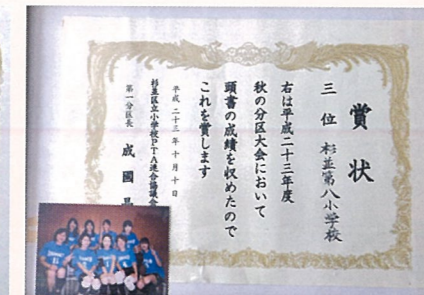 賞状
三位 杉並第八小学校
右は平成二十三年度
秋の分区大会において
頭書の成績を収めたので
これを賞します
平成二十三年十月十日
杉並区立小学校PTA連合協議会
第一分区長 成國